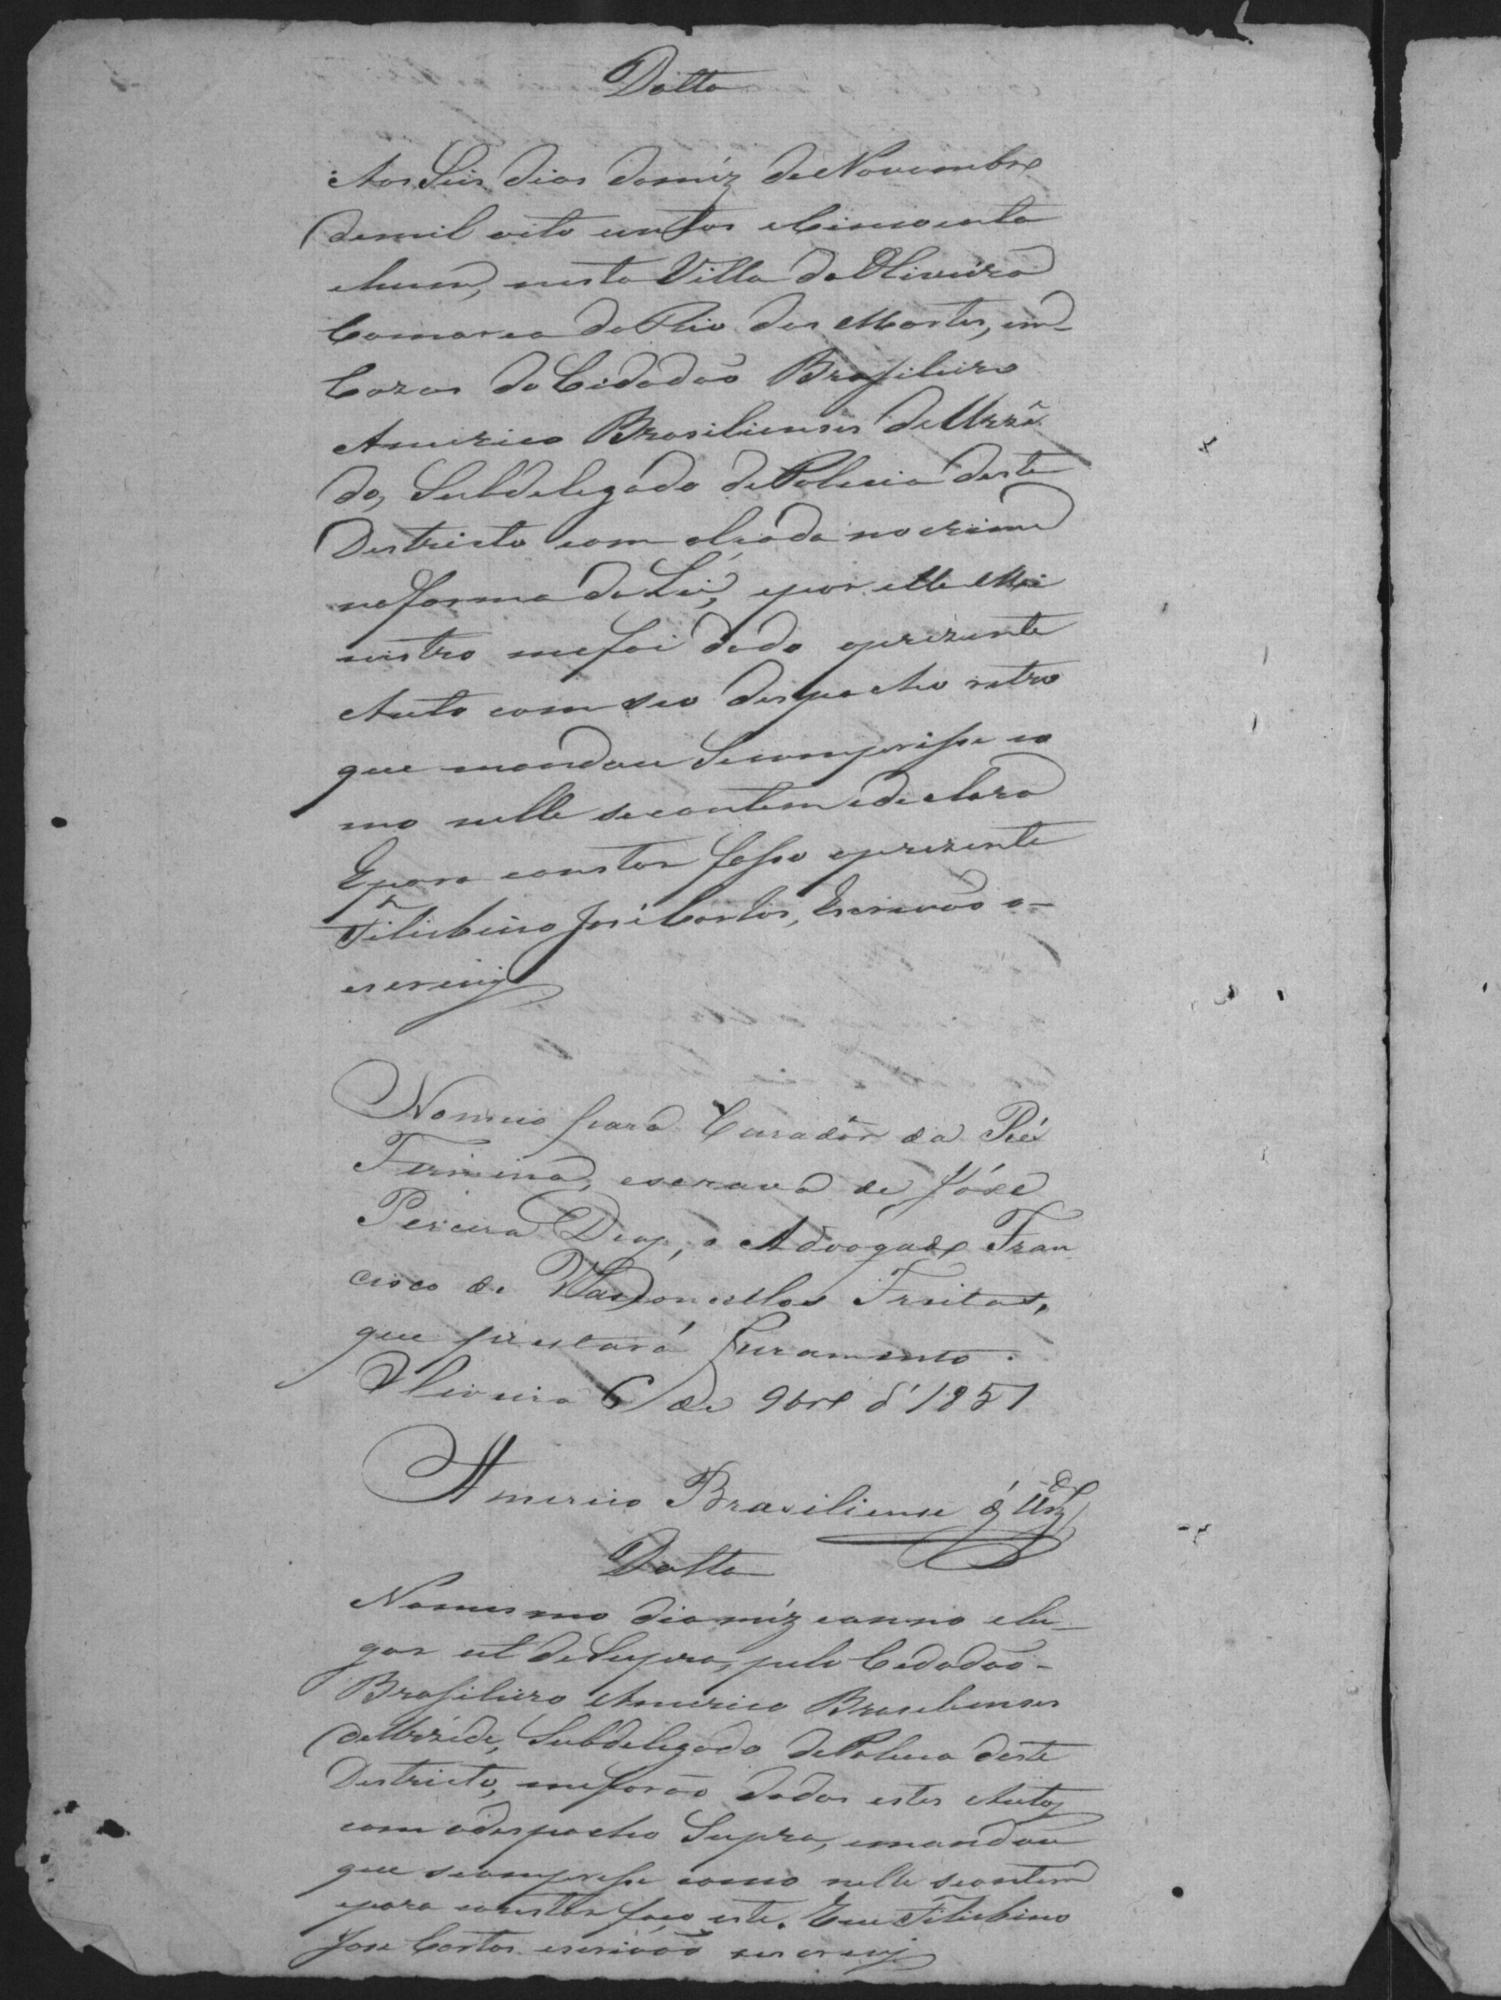 Datta
Aos Seis dias domêz de Novembro
demil oito centos eCincoenta
ehum, nesta Villa de Oliveira
Comarca do Rio das Mortes, em
Cazas do Cidadão Brasileiro
Americo Brasiliensis de Urzê
do, Subdelegado dePolicia deste
Destricto com alsada no crime
naforma da Lei, epor elle Mi
nistro mefoi dado oprezente
Auto com seo despacho retro
que mandou Secomprisse co
mo nelle secontem edeclara
Epara constar fasso oprezente
José Cortes, Escrivão o
escrevij
Nomeio para Curador da Ré
Firmina, escrava de José
Pereira Dias, o Advogado Fran
cisco de Vasconcellos Freitas,
que prestará Juramento.
Oliveira 6 de 9bro d'1851
Americo Brasiliense d'
Datta
Nomesmo dia mêz eanno elu
gar ut deSupra, pelo Cedadão
Brasileiro Americo Brasiliensis
deUrzêde, Subdelegado dePolicia deste
Destricto, meforão dados estes Autos
com odespacho Supra, emandou
que secomprisse como nelle secontem
epara constar faço este. Eu
José Cortes escrivão escrevij